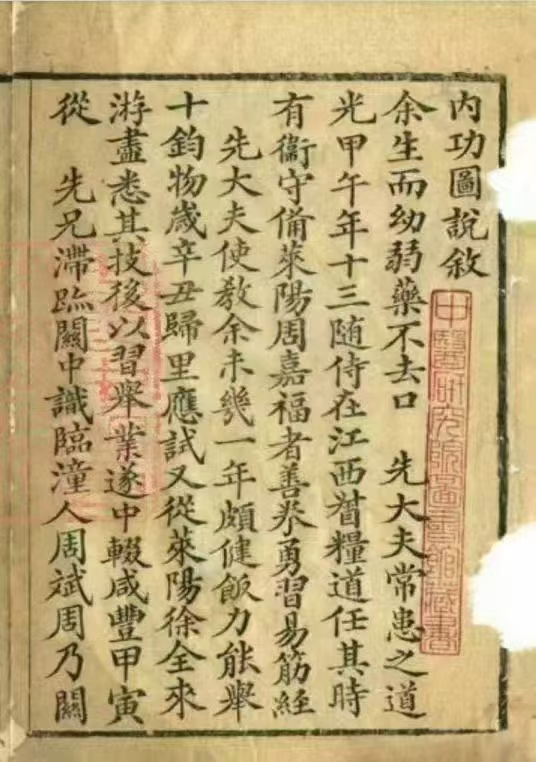 內功圖說敘
余生而幼弱藥不去口 先大夫常患之道
光甲午年十三随侍在江西督糧道任其時
有衞守備萊陽周嘉福者善拳勇習易筋經
先大夫使教余未幾一年頗健飯力能舉
十鈞物歲辛丑歸里應試又從萊陽徐全來
游盡悉其技後以習舉業遂中輟咸豐甲寅
從 先兄滯跡關中識臨潼人周斌周乃關
中醫研究院圖書館藏書